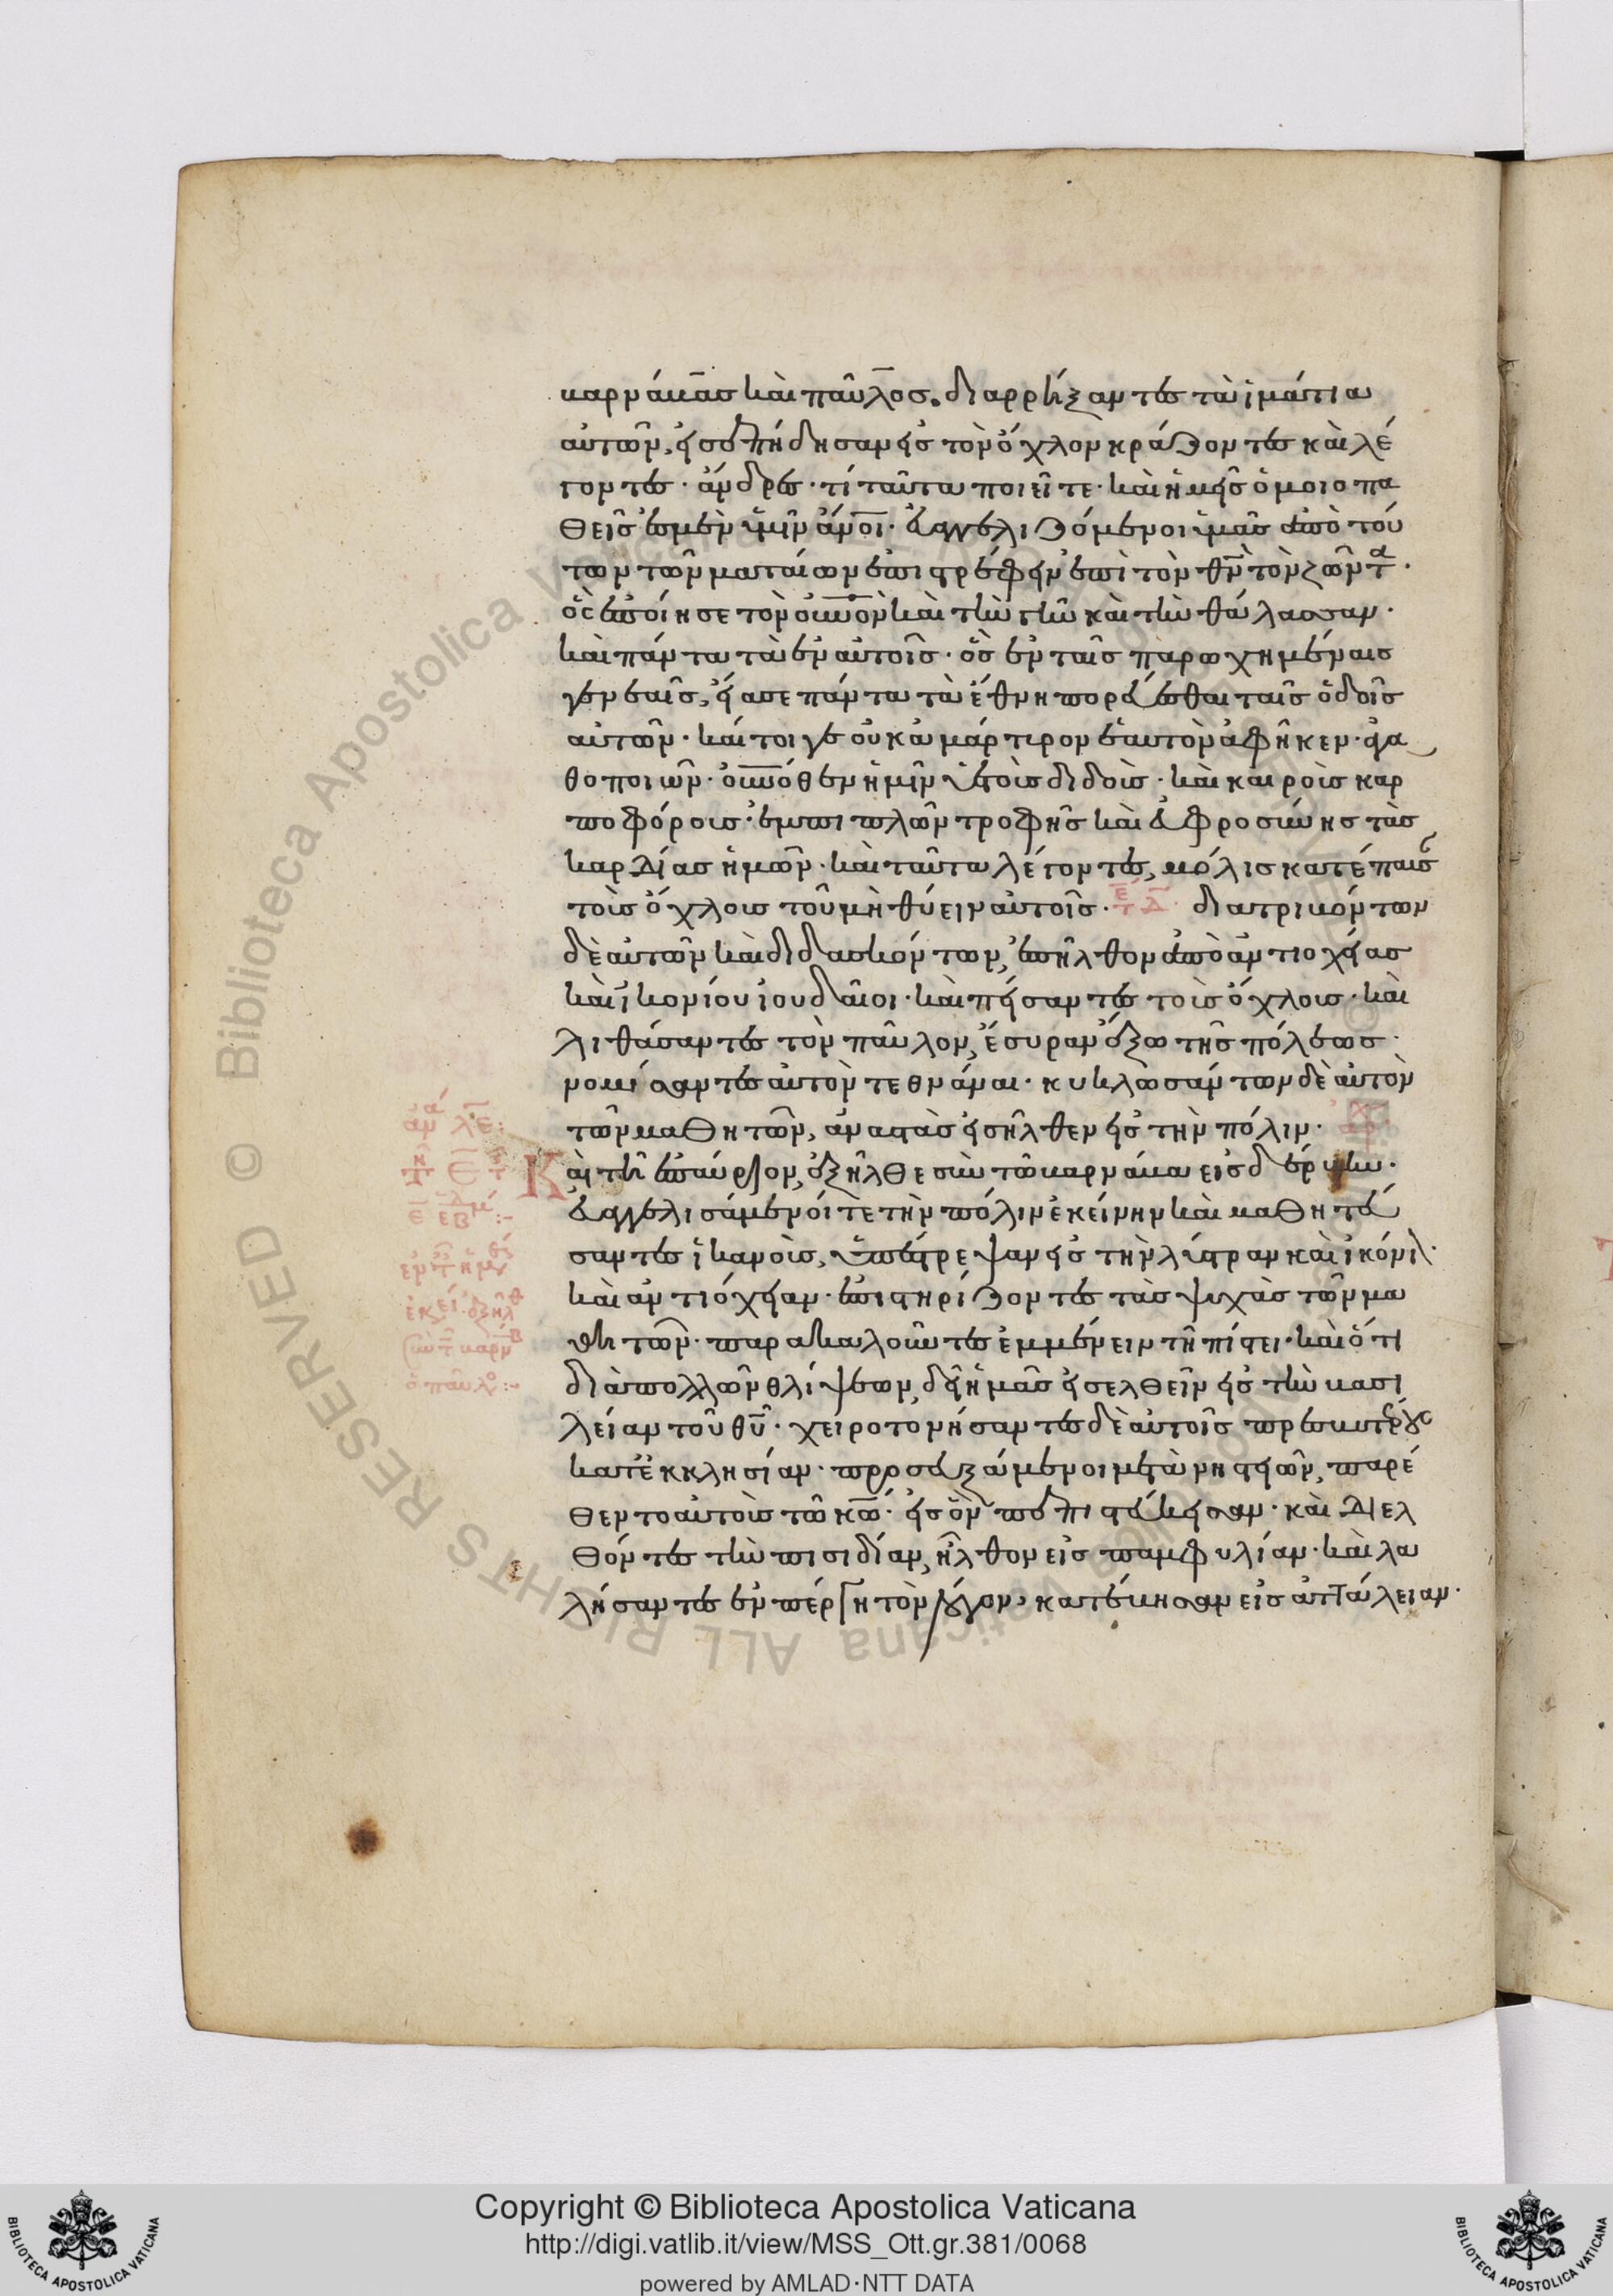 βαρνάβας καὶ παῦλος. διαρρήξαντες τὰ ἱμάτια
αὐτῶν, εἰσεπήδησαν εἰς τὸν ὄχλον κράζοντες καὶ λέ
γοντες· ἄνδρες· τί ταῦτα ποιεῖτε· καὶ ἡμεῖς ὁμοιοπα
θεῖς ἐσμὲν ὑμῖν ἄνοι· εὐαγγελιζόμενοι ὑμᾶς ἀπὸ τού
των τῶν ματαίων ἐπιστρέφειν ἐπὶ τὸν θν τὸν ζῶντα·
ὃς ἐποίησε τὸν οὐνον καὶ τὴν γῆν καὶ τὴν θάλασσαν·
καὶ πάντα τὰ ἐν αὐτοῖς· ὃς ἐν ταῖς παρωχημέναις
γενεαῖς, εἴασε πάντα τὰ ἔθνη πορεύεσθαι ταῖς ὁδοῖς
αὐτῶν· καίτοιγε οὐκ ἀμάρτυρον ἑαυτὸν ἀφῆκεν· ἀγα
θοποιῶν· οὐνόθεν ἡμῖν ὑετοὺς διδοὺς· καὶ καιροὺς καρ
ποφόρους· ἐμπιπλῶν τροφῆς καὶ εὐφροσύνης τὰς
καρδίας ἡμῶν· καὶ ταῦτα λέγοντες, μόλις κατέπαυσ
τοὺς ὄχλους τοῦ μὴ θύειν αὐτοῖς· διατριβόντων
δὲ αὐτῶν καὶ διδασκόντων, ἐπῆλθον ἀπὸ ἀντιοχείας
καὶ ἰκονίου ἰουδαῖοι· καὶ πείσαντες τοὺς ὄχλους· καὶ
λιθάσαντες τὸν παῦλον, ἔσυραν ἔξω τῆς πόλεως·
νομίσαντες αὐτὸν τεθνάναι· κυκλωσάντων δὲ αὐτὸν
τῶν μαθητῶν, ἀναστὰς εἰσῆλθεν εἰς τὴν πόλιν·
Καὶ τῇ ἐπαύριον, ἐξῆλθε σὺν τῶ βαρνάβα εἰς δέρβην·
εὐαγγελισάμενοί τε τὴν πόλιν ἐκείνην καὶ μαθητεύ
σαντες ἱκανοὺς, ὑπέστρεψαν εἰς τὴν λύστραν καὶ ἰκόνι
καὶ ἀντιόχειαν· ἐπιστηρίζοντες τὰς ψυχὰς τῶν μα
θητῶν· παρακαλοῦντες ἐμμένειν τῇ πίστει· καὶ ὅτι
διὰ πολλῶν θλίψεων, δεῖ ἡμᾶς εἰσελθεῖν εἰς τὴν βασι
λείαν τοῦ θυ· χειροτονήσαντες δὲ αὐτοῖς πρεσβυτέρους
κατ' ἐκκλησίαν· προσευξάμενοι μετὰ νηστειῶν, παρέ
θεντο αὐτοὺς τῶ κω· εἰς ὃν πεπιστεύκεισαν· καὶ διελ
θόντες τὴν πισιδίαν, ἦλθον εἰς παμφυλίαν· καὶ λα
λήσαντες ἐν πέργη τὸν λόγον, κατέβησαν εἰς ἀττάλειαν·
Copyright © Biblioteca Apostolica Vaticana
http://digi.vatlib.it/view/MSS_Ott.gr.381/0068
powered by AMLAD·NTT DATA